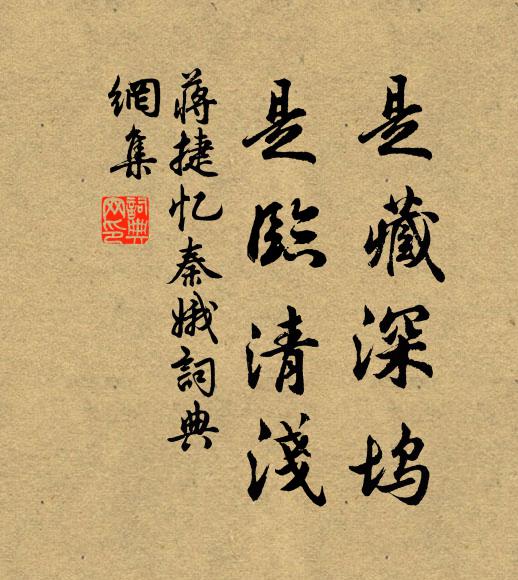 是藏深坞
是臨清淺
蔣捷忆秦娥詞典
網集
詞典
网印